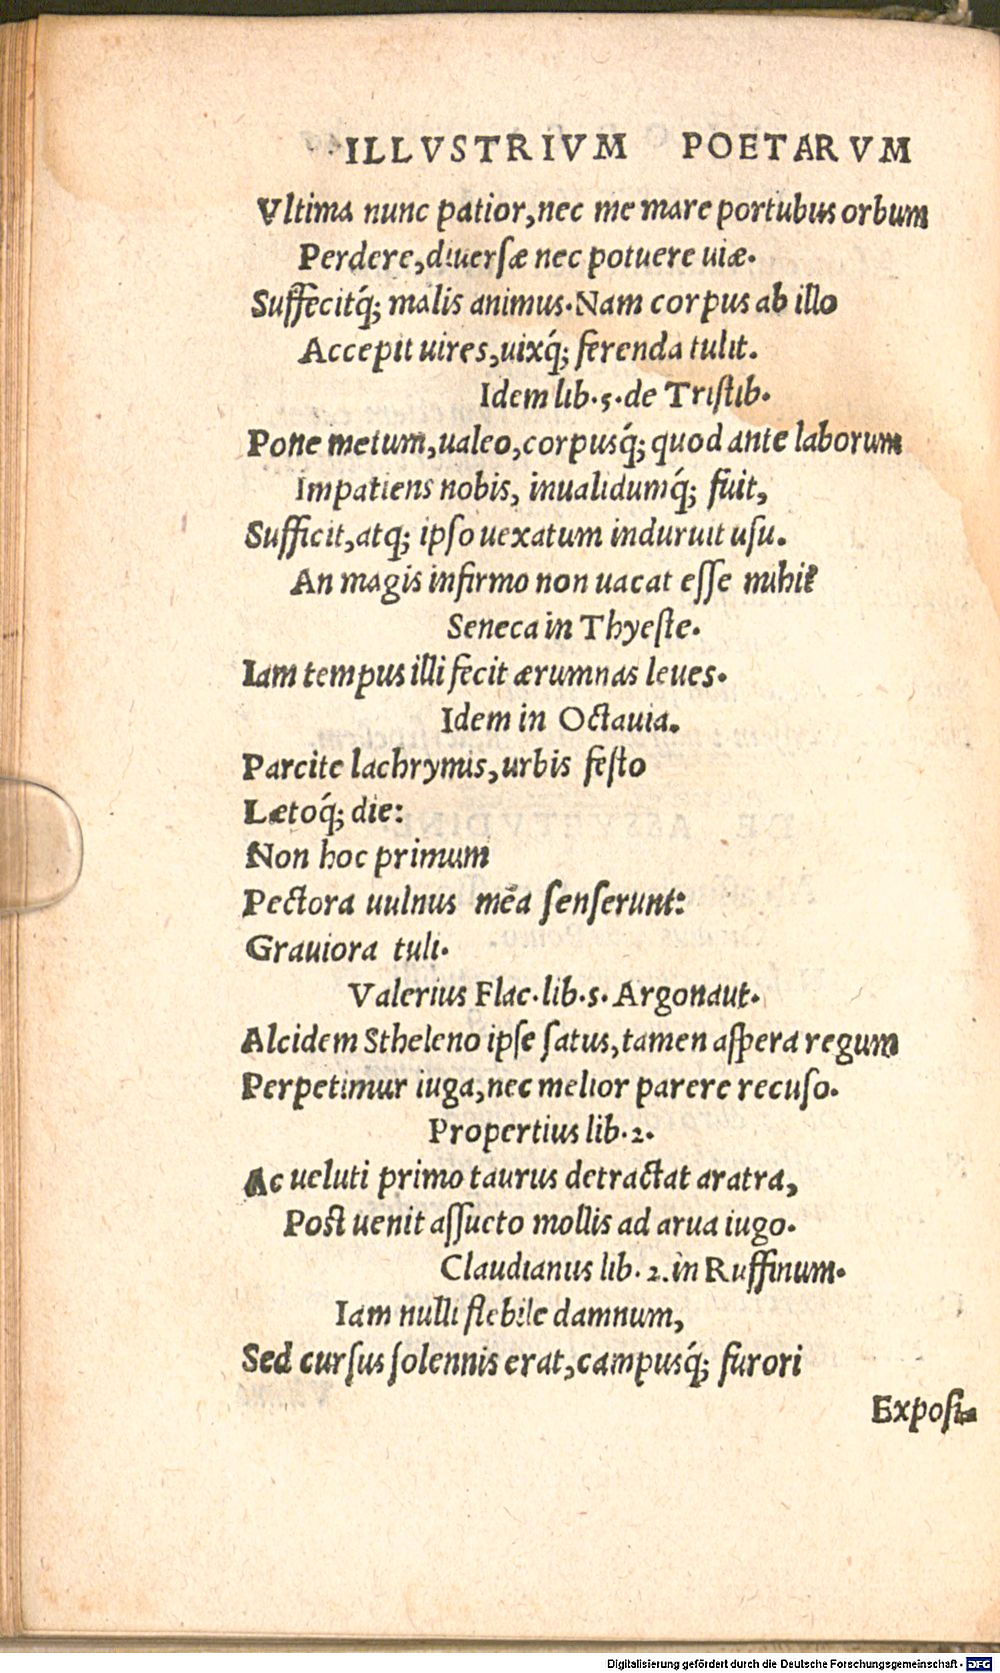 ILLVSTRIVM POETARVM
Vltima nunc patior, nec me mare portubus orbum
Perdere, diuersæ nec potuere uiæ.
Suffecitq́; malis animus. Nam corpus ab illo
Accepit uires, uixq́; ferenda tulit.
Idem lib. 5. de Tristib.
Pone metum, ualeo, corpusq́; quod ante laborum
Impatiens nobis, inualidumq́; fuit,
Sufficit, atq; ipso uexatum induruit usu.
An magis infirmo non uacat esse mihi?
Seneca in Thyeste.
Iam tempus illi fecit ærumnas leues.
Idem in Octauia.
Parcite lachrymis, urbis festo
Lætoq́; die:
Non hoc primum
Pectora uulnus mea senserunt:
Grauiora tuli.
Valerius Flac. lib. 5. Argonaut.
Alcidem Stheleno ipse satus, tamen aspera regum
Perpetimur iuga, nec melior parere recuso.
Propertius lib. 2.
Ac ueluti primo taurus detractat aratra,
Post uenit assueto mollis ad arua iugo.
Claudianus lib. 2. in Ruffinum.
Iam nulli flebile damnum,
Sed cursus solennis erat, campusq́; furori
Exposi-
Digitalisierung gefördert durch die Deutsche Forschungsgemeinschaft - DFG